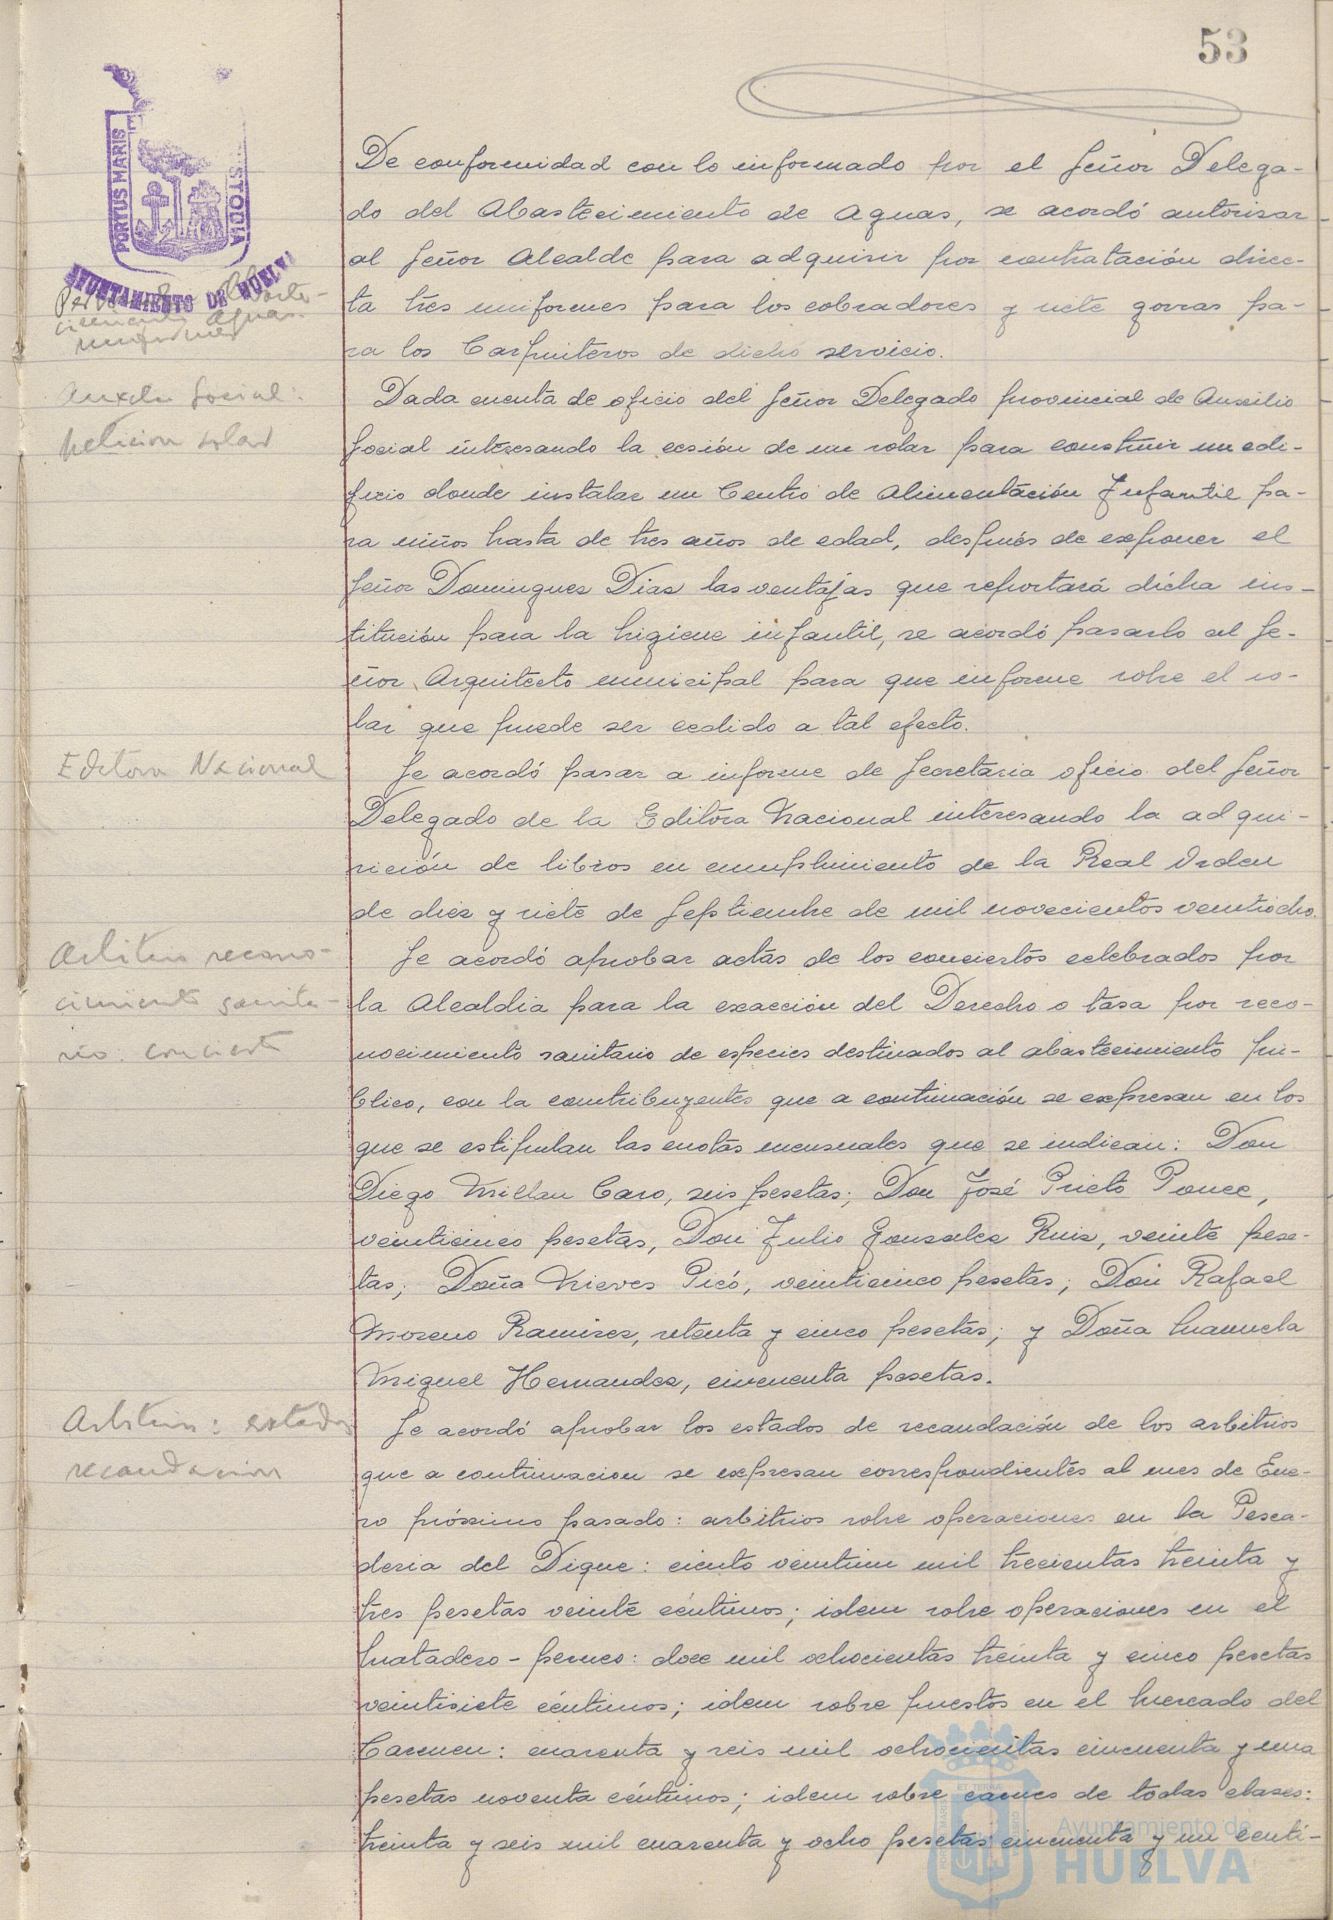 53
PORTUS MARIS
CUSTODIA
AYUNTAMIENTO DE HUELVA
De conformidad con lo informado por el Señor Delega-
do del Abastecimiento de Aguas, se acordó autorizar
al Señor Alcalde para adquirir por contratación direc-
ta tres uniformes para los cobradores y siete gorras pa-
ra los Carpinteros de dicho servicio.
Auxilio Social:
petición solar
Dada cuenta de oficio del Señor Delegado provincial de Auxilio
Social interesando la cesión de un solar para construir un edi-
ficio donde instalar un Centro de Alimentación Infantil pa-
ra niños hasta de tres años de edad, después de exponer el
Señor Dominguez Diaz las ventajas que reportará dicha ins-
titución para la higiene infantil, se acordó pasarlo al Se-
ñor Arquitecto municipal para que informe sobre el so-
lar que puede ser cedido a tal efecto.
Editora Nacional
Se acordó pasar a informe de Secretaria oficio del Señor
Delegado de la Editora Nacional interesando la adqui-
sición de libros en cumplimiento de la Real Orden
de diez y siete de Septiembre de mil novecientos veintiocho.
Arbitrio recono-
cimiento sanita-
rio. concierto
Se acordó aprobar actas de los conciertos celebrados por
la Alcaldia para la exacción del Derecho o tasa por reco-
nocimiento sanitario de especies destinados al abastecimiento pú-
blico, con la contribuyentes que a continuación se expresan en los
que se estipulan las cuotas mensuales que se indican: Don
Diego Millan Caro, seis pesetas; Don José Prieto Ponce,
veinticinco pesetas, Don Julio Gonzalez Ruiz, veinte pese-
tas; Doña Nieves Picó, veinticinco pesetas; Don Rafael
Moreno Ramirez, setenta y cinco pesetas; y Doña Manuela
Miguel Hernandez, cincuenta pesetas.
Arbitrios: estados
recaudacion
Se acordó aprobar los estados de recaudación de los arbitrios
que a continuacion se expresan correspondientes al mes de Ene-
ro próximo pasado: arbitrios sobre operaciones en la Pesca-
deria del Dique: ciento veintiun mil trecientas treinta y
tres pesetas veinte céntimos; idem sobre operaciones en el
Matadero-
doce mil ochocientas treinta y cinco pesetas
veintisiete céntimos; idem sobre puestos en el Mercado del
Carmen: cuarenta y seis mil ochocientas cincuenta y una
pesetas noventa céntimos; idem sobre carnes de todas clases:
treinta y seis mil cuarenta y ocho pesetas cincuenta y un centi-
Ayuntamiento de
HUELVA